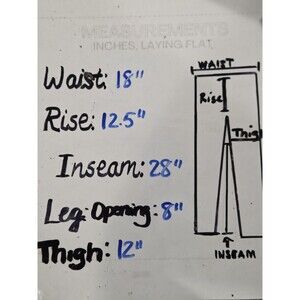 MEASUREMENTS
INCHES, LAYING FLAT
Waist: 18"
Rise: 12.5"
Inseam: 28"
Leg Opening: 8"
Thigh: 12"
WAIST
Rise
Thigh
INSEAM